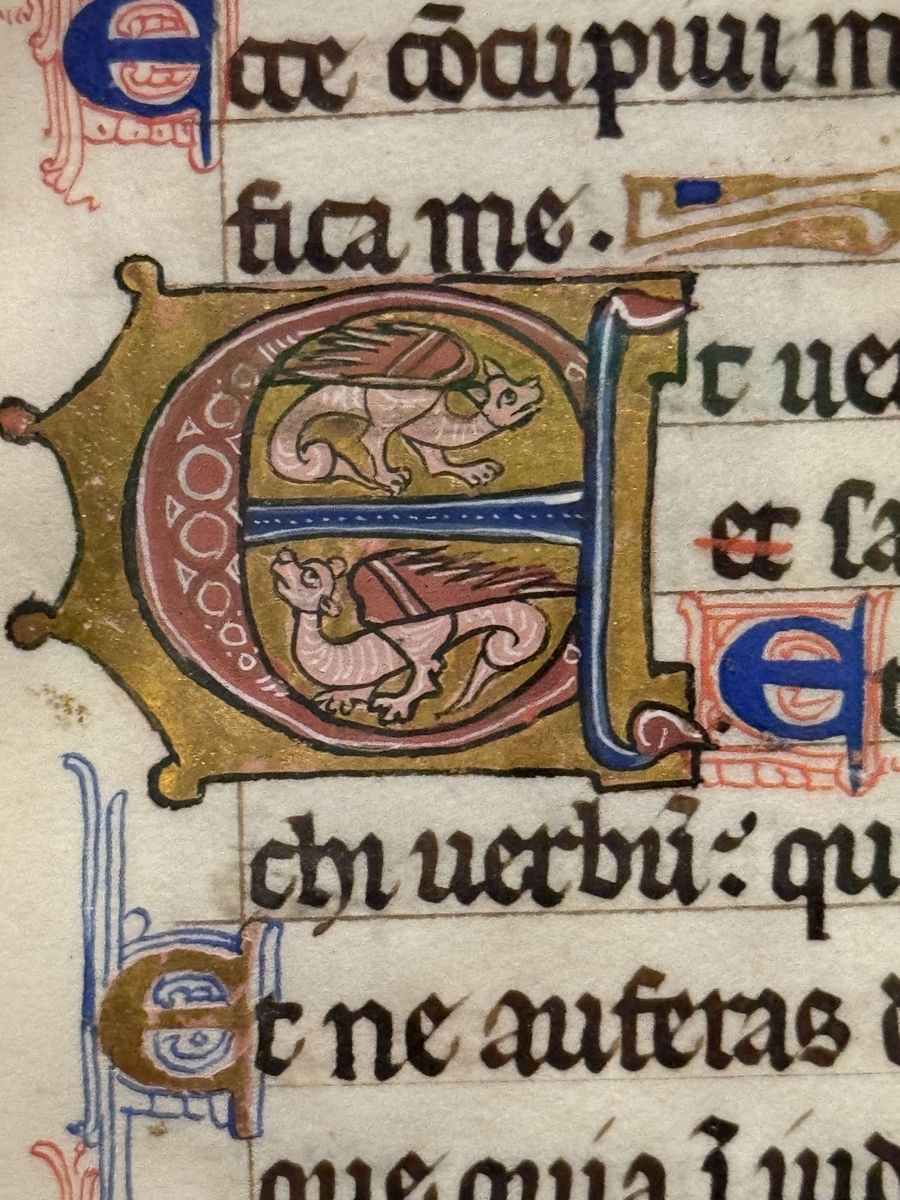 Ecce cōcupiui m
fica me.
Et ue
et sa
Et
chi uerbū: qu
Et ne auferas d
que quia ī iud